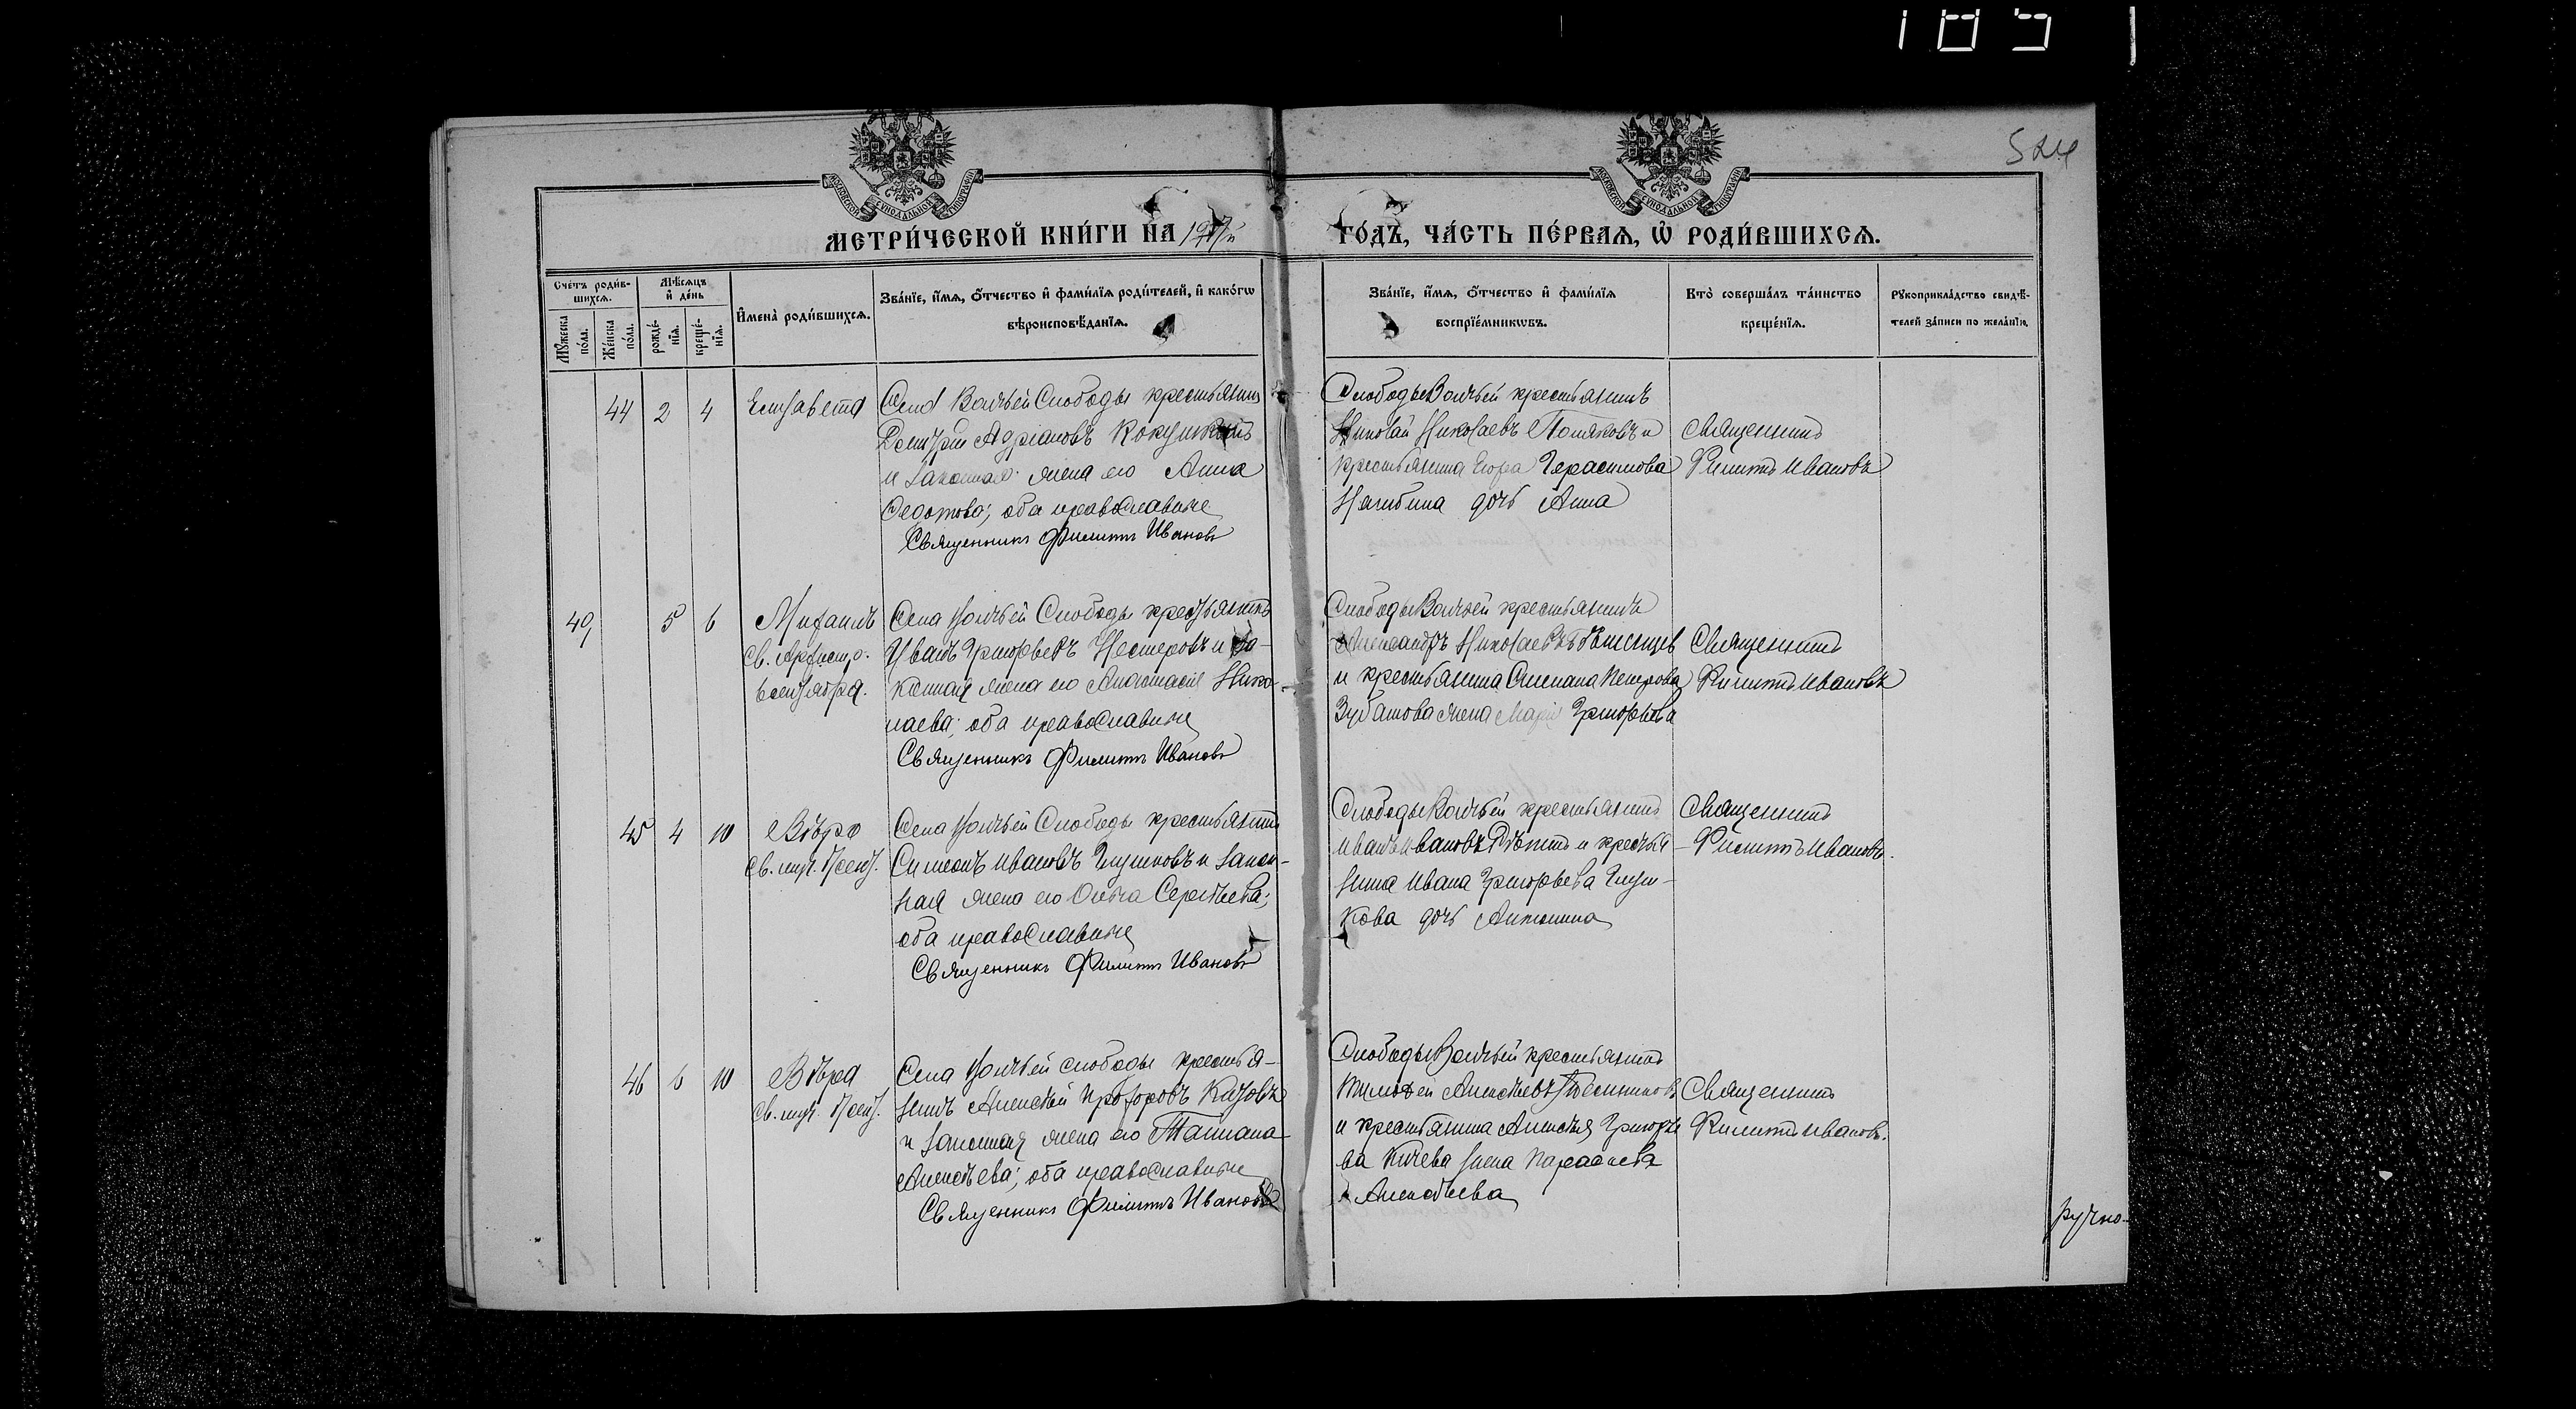 524
МОСКОВСКОЙ СУНОДАЛЬНОЙ ТИПОГРАФІИ
МОСКОВСКОЙ СУНОДАЛЬНОЙ ТИПОГРАФІИ
МЕТРИ́ЧЕСКОЙ КНИ́ГИ НА 1907й ГО́ДЪ, ЧА́СТЬ ПЕ́РВАѦ, Ѡ҆ РОДИ́ВШИХСѦ.
Сче́тъ роди́в-
шихсѧ.
Мꙋ́жеска по́ла.
Же́нска по́ла.
Мѣ́сѧцъ и҆ де́нь
рожде́-
нїѧ.
креще́-
нїѧ.
И҆мена̀ роди́вшихсѧ.
Зва́нїе, и҆́мѧ, ѻ҆́тчество и҆ фами́лїѧ роди́телей, и҆ како́гѡ
вѣроисповѣ́данїѧ.
Зва́нїе, и҆́мѧ, ѻ҆́тчество и҆ фами́лїѧ
воспрїе́мникѡвъ.
Кто̀ соверша́лъ та́инство
креще́нїѧ.
Рꙋкоприкла́дство свидѣ́-
телей за́писи по жела́нїю.
44 2 4 Елизавета
Села Волчьей Слободы крестьянинъ
Дмитрій Адріановъ Кокушкинъ
и законная жена его Анна
Федотова; оба православные
Священникъ Филиппъ Ивановъ
Слободы Волчьей крестьянинъ
Николай Николаевъ Поляковъ и
крестьянина Егора Герасимова
Нагибина дочь Анна
Священникъ
Филиппъ Ивановъ
40, 5 6 Михаилъ
Св. Архистр.
6 сентября.
Села Волчьей Слободы крестьянинъ
Иванъ Григорьевъ Нестеровъ и за-
конная жена его Анастасія Нико-
лаева; оба православные
Священникъ Филиппъ Ивановъ
Слободы Волчьей крестьянинъ
Александръ Николаевъ
и крестьянина Степана Петрова
Зубатова жена Марія Григорьева
Священникъ
Филиппъ Ивановъ
45 4 10 Вѣра
Св. муч. 17 сент.
Села Волчьей Слободы крестьянинъ
Симеонъ Ивановъ Глушковъ и закон-
ная жена его Ольга Сергѣева;
оба православные
Священникъ Филиппъ Ивановъ
Слободы Волчьей крестьянинъ
Иванъ Ивановъ Рѣпинъ и крестья-
нина Ивана Григорьева Глуш-
кова дочь Антонина
Священникъ
Филиппъ Ивановъ.
46 6 10 Вѣра
Св. муч. 17 сент.
Села Волчьей слободы крестья-
нинъ Алексѣй Прохоровъ
и законная жена его Татіана
Алексѣева; оба православные
Священникъ Филиппъ Ивановъ
Слободы Волчьей крестьянинъ
Тимофей Алексѣевъ
и крестьянина Алексѣя Григорье
ва жена Параскева
Алексѣева
Священникъ
Филиппъ Ивановъ.
ручно-